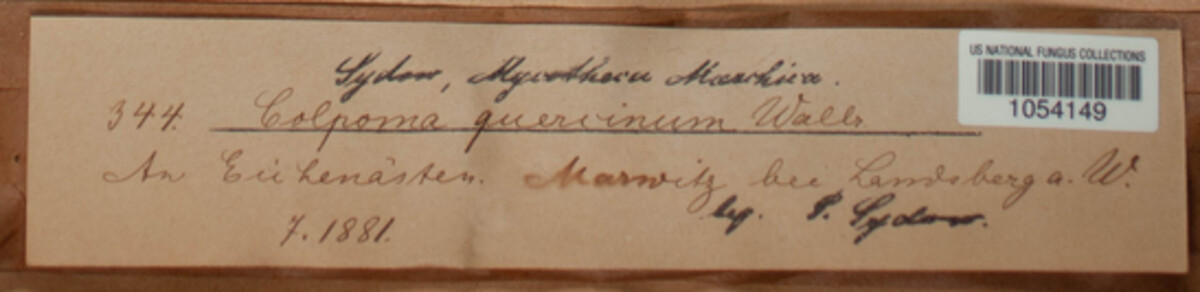 Sydow, Mycotheca Marchica.
US NATIONAL FUNGUS COLLECTIONS
1054149
344. Colpoma quercinum Wallr.
An Eichenästen. Marwitz bei Landsberg a. W.
leg. P. Sydow.
7. 1881.